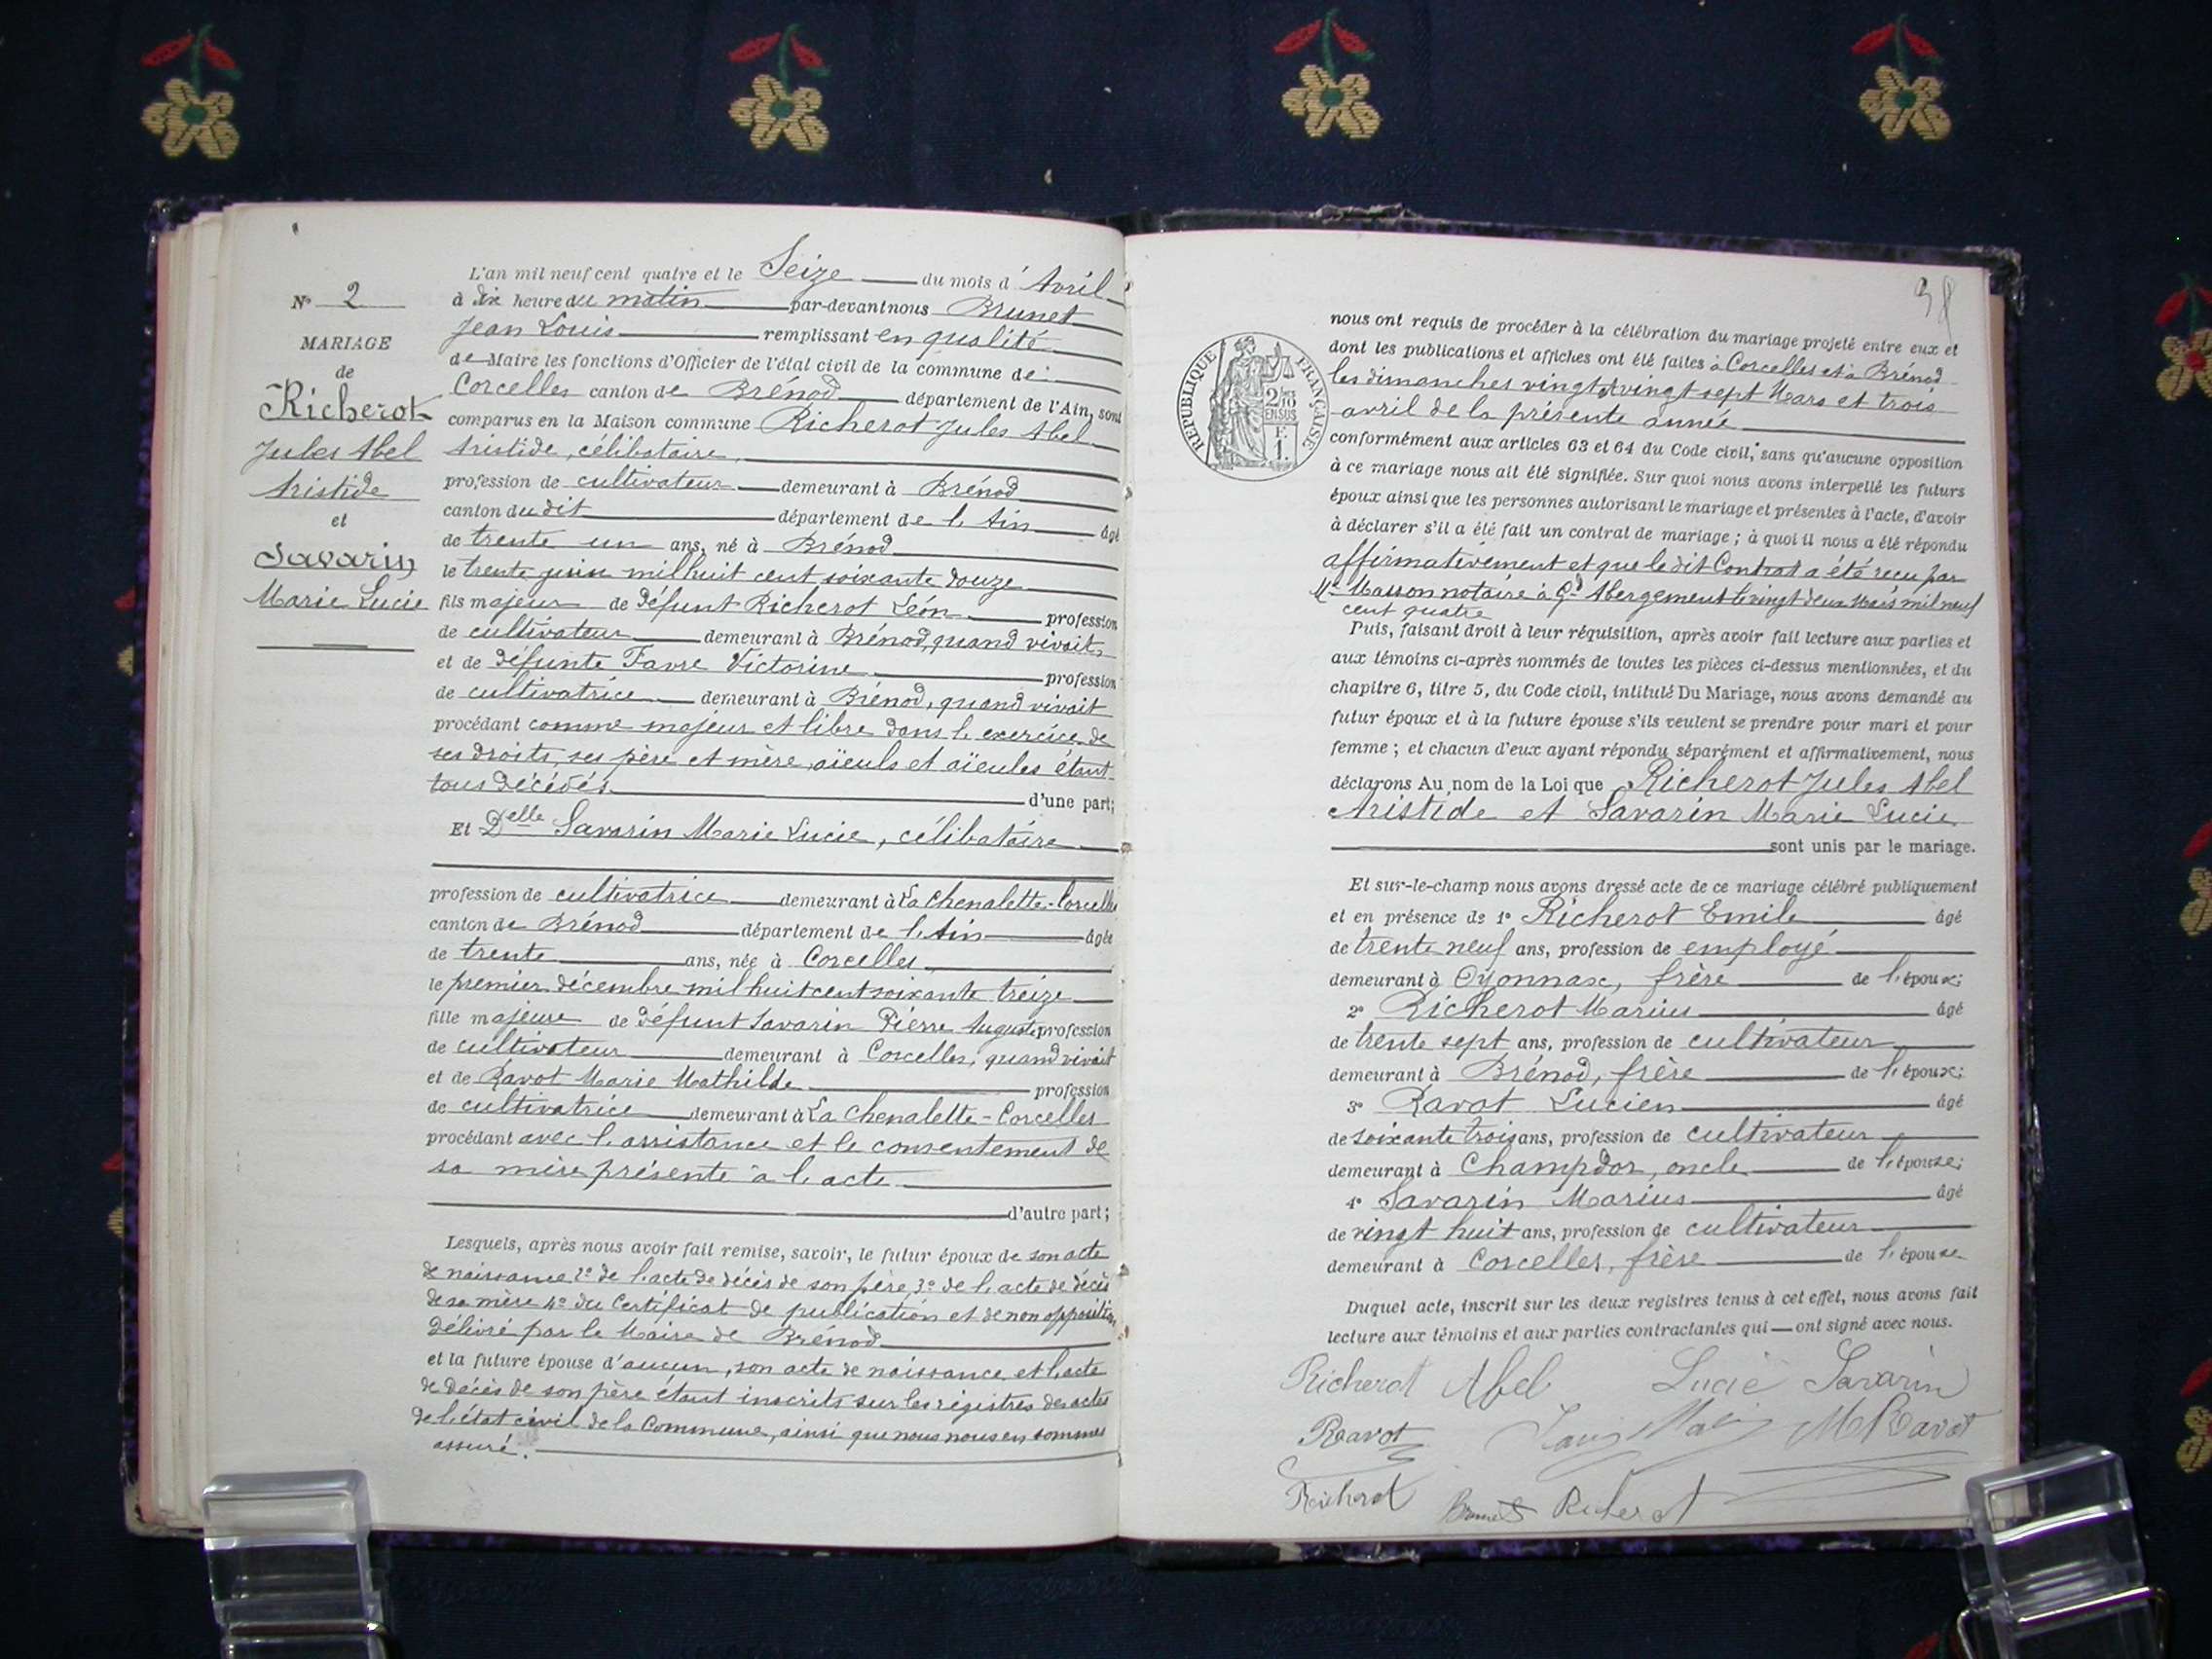 L'an mil neuf cent quatre et le Seize du mois d'Avril
à dix heure du matin par-devant nous Brunet
Jean Louis remplissant en qualité
de Maire les fonctions d'Officier de l'état civil de la commune de
Corcelles canton de Brénod département de l'Ain, sont
comparus en la Maison commune Richerot Jules Abel
Aristide, célibataire,
profession de cultivateur demeurant à Brénod
canton du dit département de l'Ain âgé
de trente un ans, né à Brénod
le trente juin mil huit cent soixante douze
fils majeur de défunt Richerot Léon profession
de cultivateur demeurant à Brénod, quand vivait,
et de défunte Favre Victorine profession
de cultivatrice demeurant à Brénod, quand vivait
procédant comme majeur et libre dans l'exercice de
ses droits, ses père et mère, aïeuls et aïeules étant
tous décédés d'une part;
Et Delle Savarin Marie Lucie, célibataire
profession de cultivatrice demeurant à La Chenalette-Corcelles
canton de Brénod département de l'Ain âgée
de trente ans, née à Corcelles
le premier décembre mil huit cent soixante treize
fille majeure de défunt Savarin Pierre Auguste profession
de cultivateur demeurant à Corcelles, quand vivait
et de Ravot Marie Mathilde profession
de cultivatrice demeurant à La Chenalette-Corcelles
procédant avec l'assistance et le consentement de
sa mère présente à l'acte
d'autre part;
Lesquels, après nous avoir fait remise, savoir, le futur époux de son acte
de naissance 2° de l'acte de décès de son père, 3° de l'acte de décès
de sa mère 4° du Certificat de publication et de non opposition
délivré par le Maire de Brénod
et la future épouse d'aucun, son acte de naissance, et l'acte
de décès de son père étant inscrits sur les régistres des actes
de l'état civil de la Commune, ainsi que nous nous en sommes
assuré.
N° 2
MARIAGE
de
Richerot
Jules Abel
Aristide
et
Savarin
Marie Lucie
38
RÉPUBLIQUE FRANÇAISE
2/10
EN SUS
F.
1.
nous ont requis de procéder à la célébration du mariage projeté entre eux et
dont les publications et affiches ont été faites à Corcelles et à Brénod
les dimanches vingt et vingt sept Mars et trois
avril de la présente année
conformément aux articles 63 et 64 du Code civil, sans qu'aucune opposition
à ce mariage nous ait été signifiée. Sur quoi nous avons interpellé les futurs
époux ainsi que les personnes autorisant le mariage et présentes à l'acte, d'avoir
à déclarer s'il a été fait un contrat de mariage; à quoi il nous a été répondu
affirmativement et que le dit Contrat a été reçu par
Me Masson notaire à Gd Abergement le vingt deux Mars mil neuf
cent quatre
Puis, faisant droit à leur réquisition, après avoir fait lecture aux parties et
aux témoins ci-après nommés de toutes les pièces ci-dessus mentionnées, et du
chapitre 6, titre 5, du Code civil, intitulé Du Mariage, nous avons demandé au
futur époux et à la future épouse s'ils veulent se prendre pour mari et pour
femme; et chacun d'eux ayant répondu séparément et affirmativement, nous
déclarons Au nom de la Loi que Richerot Jules Abel
Aristide et Savarin Marie Lucie
sont unis par le mariage.
Et sur-le-champ nous avons dressé acte de ce mariage célébré publiquement
et en présence de 1° Richerot Emile âgé
de trente neuf ans, profession de employé
demeurant à Oyonnax, frère de l'époux;
2° Richerot Marius âgé
de trente sept ans, profession de cultivateur
demeurant à Brénod, frère de l'époux;
3° Ravot Lucien âgé
de soixante trois ans, profession de cultivateur
demeurant à Champdor, oncle de l'épouse;
4° Savarin Marius âgé
de vingt huit ans, profession de cultivateur
demeurant à Corcelles, frère de l'épouse
Duquel acte, inscrit sur les deux registres tenus à cet effet, nous avons fait
lecture aux témoins et aux parties contractantes qui ont signé avec nous.
Richerot Abel Lucie Savarin
Ravot M Ravot
Richerot Brunet Richerot